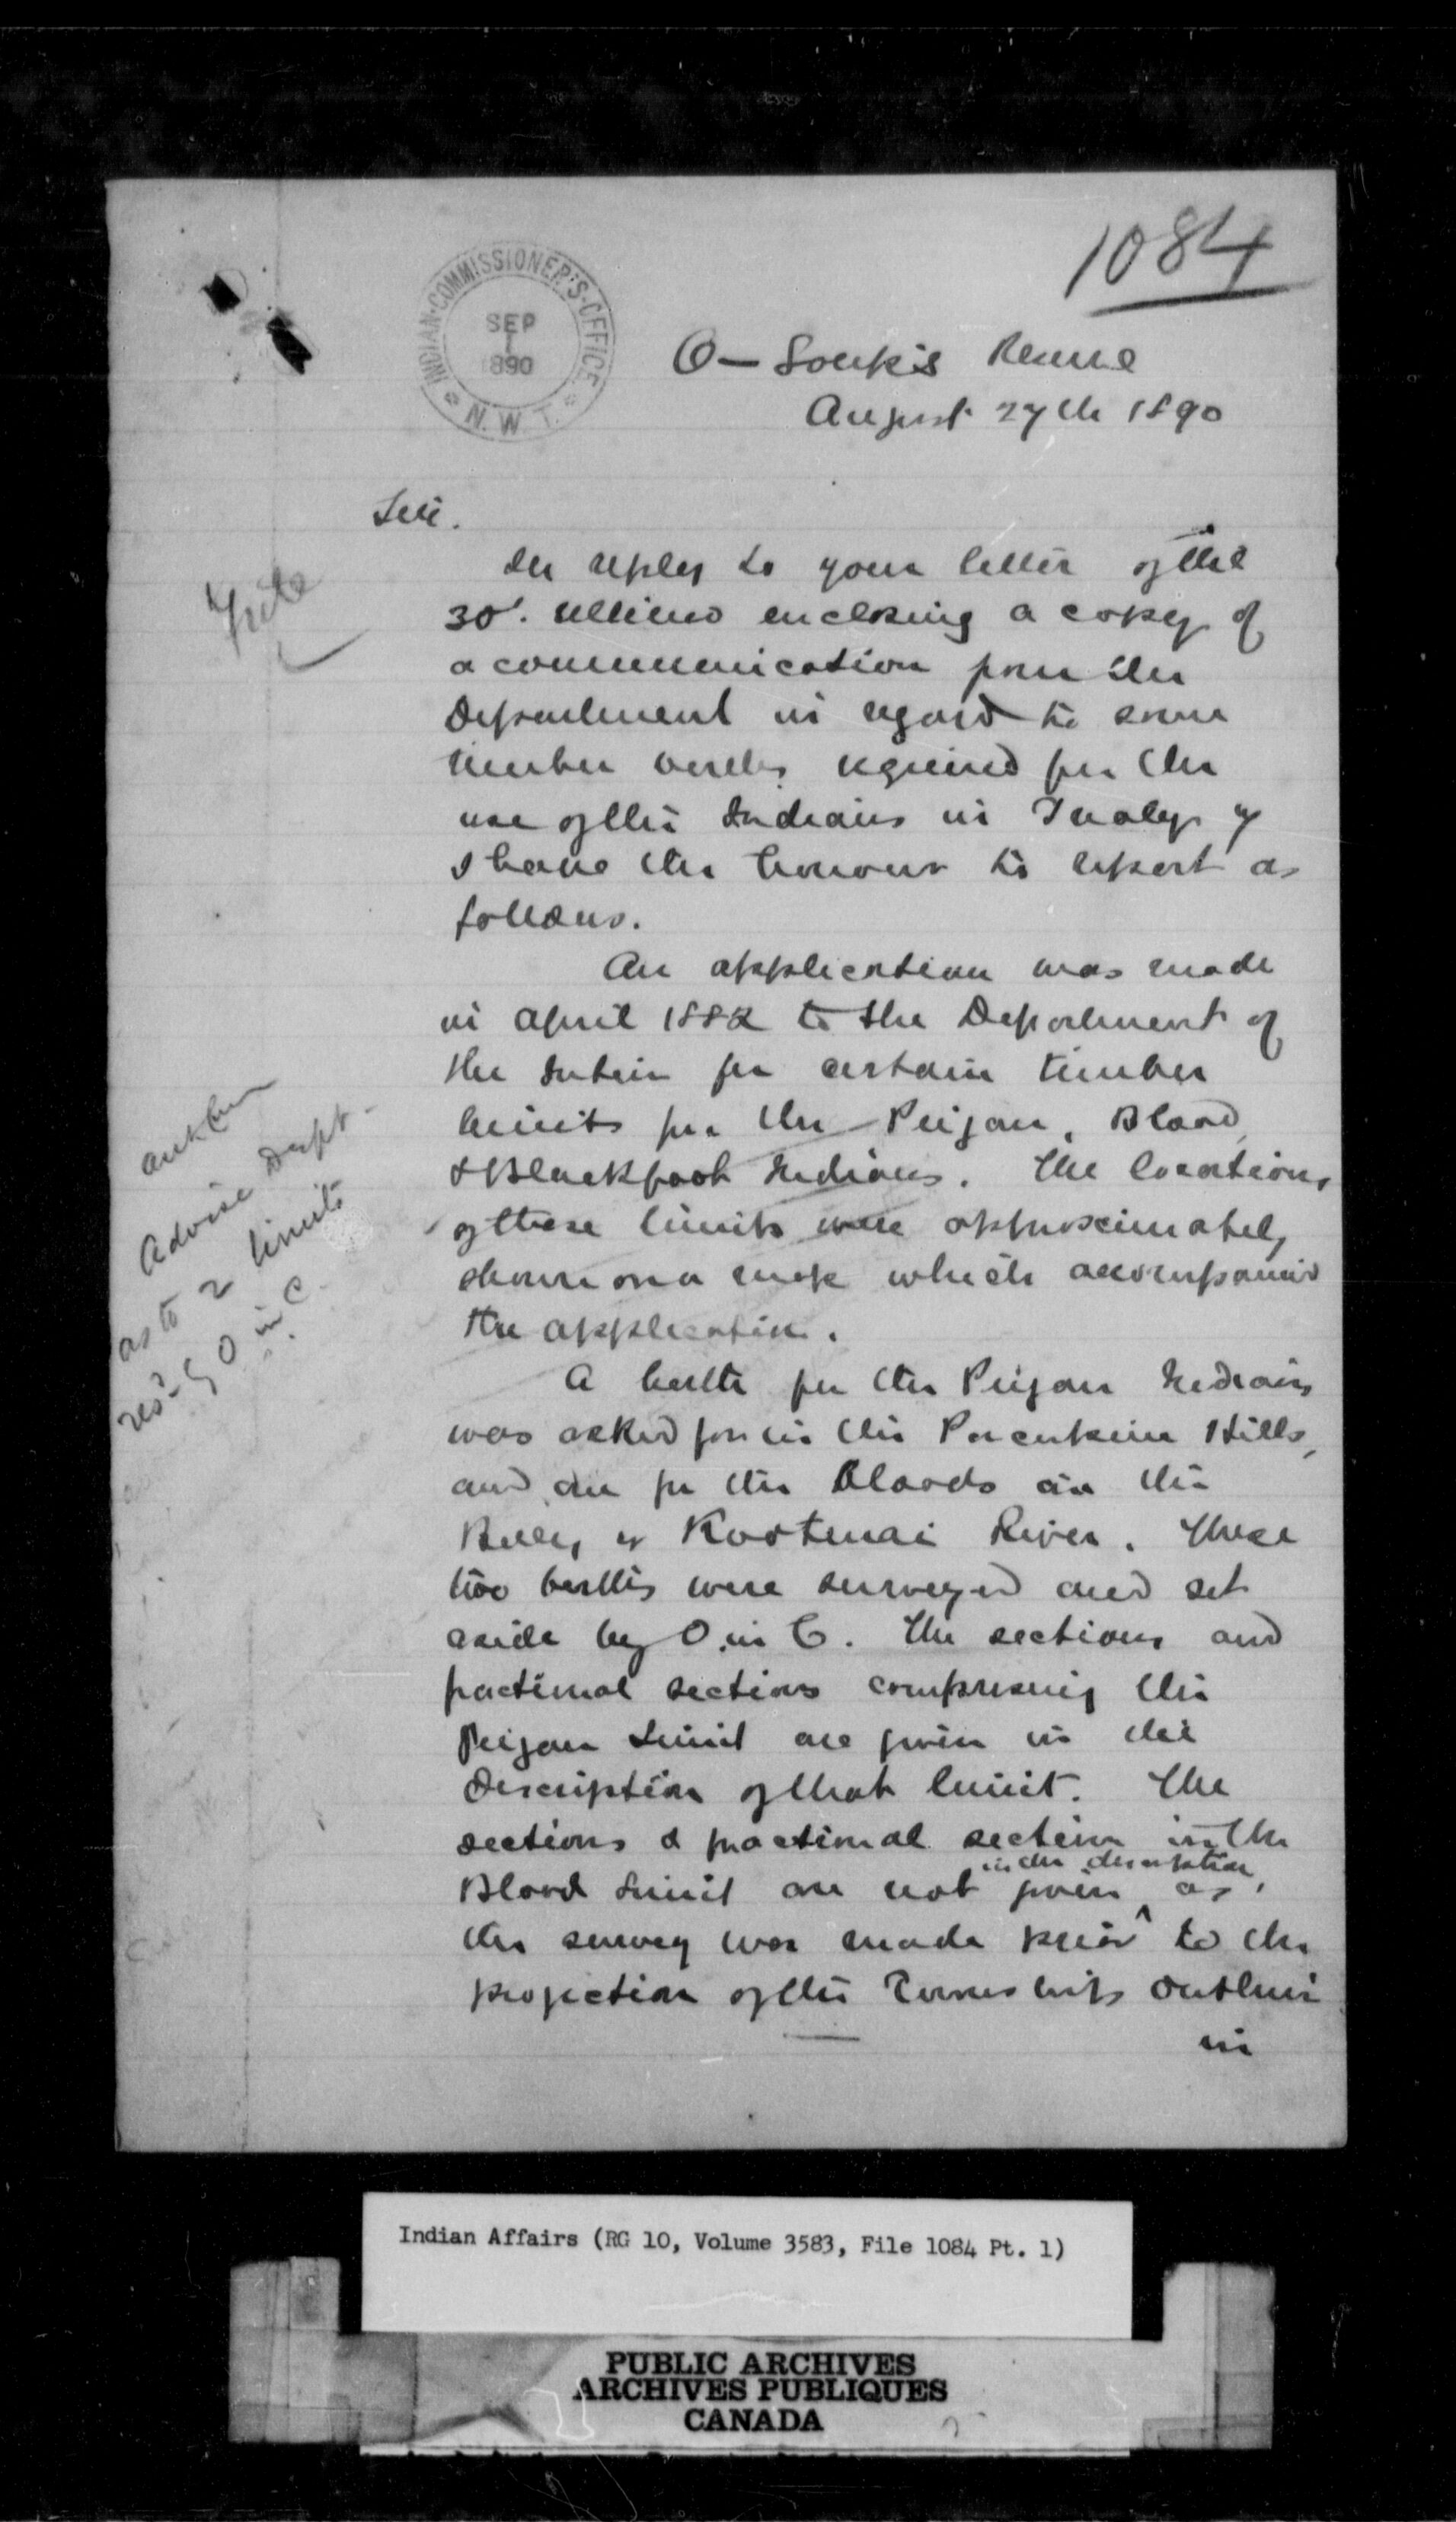 1084
INDIAN·COMMISSIONER'S·OFFICE
SEP
1
1890
N.W.T.
O-Soup's Reserve
August 27th 1890
Sir.
File
In reply to your letter of the
30'. ultimo enclosing a copy of
a communication from the
Department in regard to some
timber berths required for the
use of the Indians in Treaty 7
I have the honour to report as
follows.
An application was made
in April 1882 to the Department of
the Interior for certain timber
limits for the Peigan, Blood,
& Blackfoot Indians. The locations
of these limits were approximately
shown on a map which accompanied
the application.
Advise Dept.
as to 2 limits
res'd O in C.
A berth for the Peigan Indians
was asked for in the Porcupine Hills,
and one for the Bloods on the
Belly or Kootenai River. These
two berths were surveyed and set
aside by O. in C. The sections and
fractional sections comprising the
Peigan Limit are given in the
description of that limit. The
sections & fractional sections in the
Blood Limit are not given in the description, as
the survey was made prior to the
projection of the Townships outlines
in
Indian Affairs (RG 10, Volume 3583, File 1084 Pt. 1)
PUBLIC ARCHIVES
ARCHIVES PUBLIQUES
CANADA